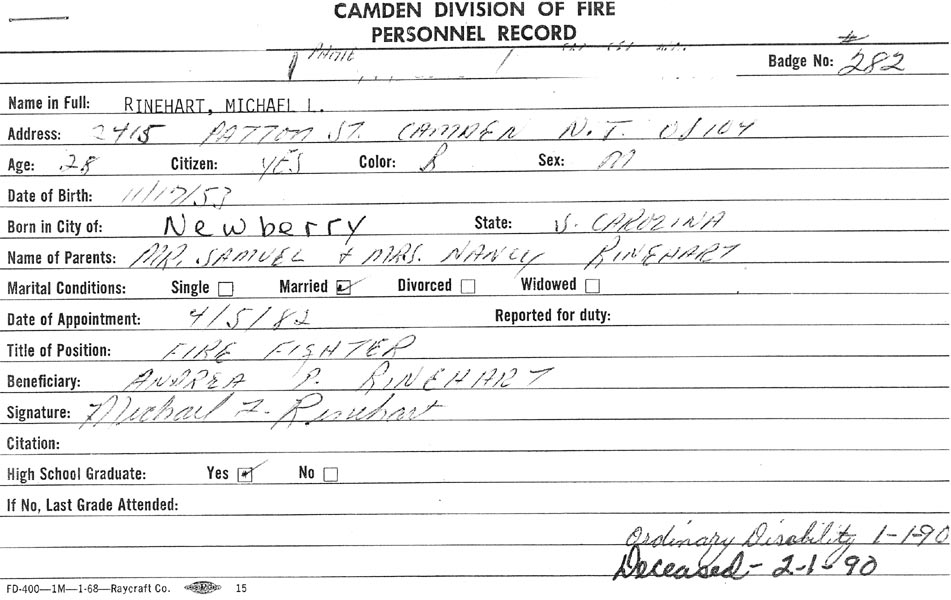 CAMDEN DIVISION OF FIRE
PERSONNEL RECORD
PHONE
Badge No: # 282
Name in Full: RINEHART, MICHAEL L.
Address: 2415 PATTON ST. CAMDEN N.J. 08104
Age: 28 Citizen: YES Color: B Sex: M
Date of Birth: 11/17/53
Born in City of: Newberry State: S. CAROLINA
Name of Parents: MR. SAMUEL + MRS. NANCY RINEHART
Marital Conditions: Single Married Divorced Widowed
Date of Appointment: 4/5/82 Reported for duty:
Title of Position: FIRE FIGHTER
Beneficiary: ANDREA P. RINEHART
Signature: Michael L. Rinehart
Citation:
High School Graduate: Yes No
If No, Last Grade Attended:
Ordinary Disability 1-1-90
Deceased - 2-1-90
FD-400—1M—1-68—Raycraft Co. 15